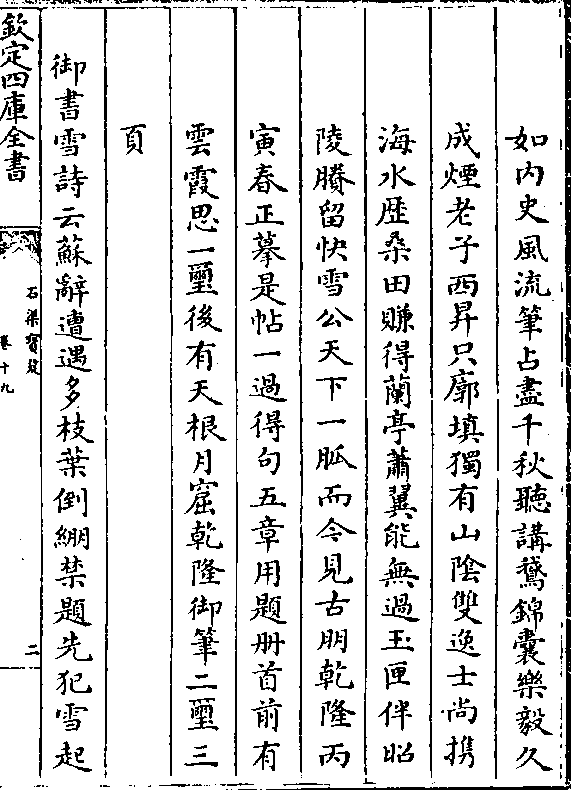 如内史風流筆占盡千秋聽講鵞錦囊樂毅久
成煙老子西昇只廓填獨有山陰雙逸士尚携
海水歴桑田賺得蘭亭蕭翼能無過玉匣伴昭
陵賸留快雪公天下一𦝫而今見古朋乾隆丙
寅春正摹是帖一過得句五章用題册首前有
雲霞思一璽後有天根月窟乾隆御筆二璽三
頁
御書雪詩云蘇辭遭遇多枝葉倒綳禁題先犯雪起
欽定四庫全書
石渠寳笈
卷十九
二